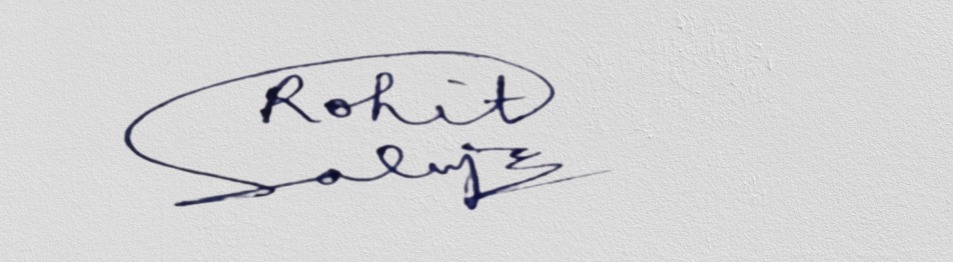 Rohit
Saluja